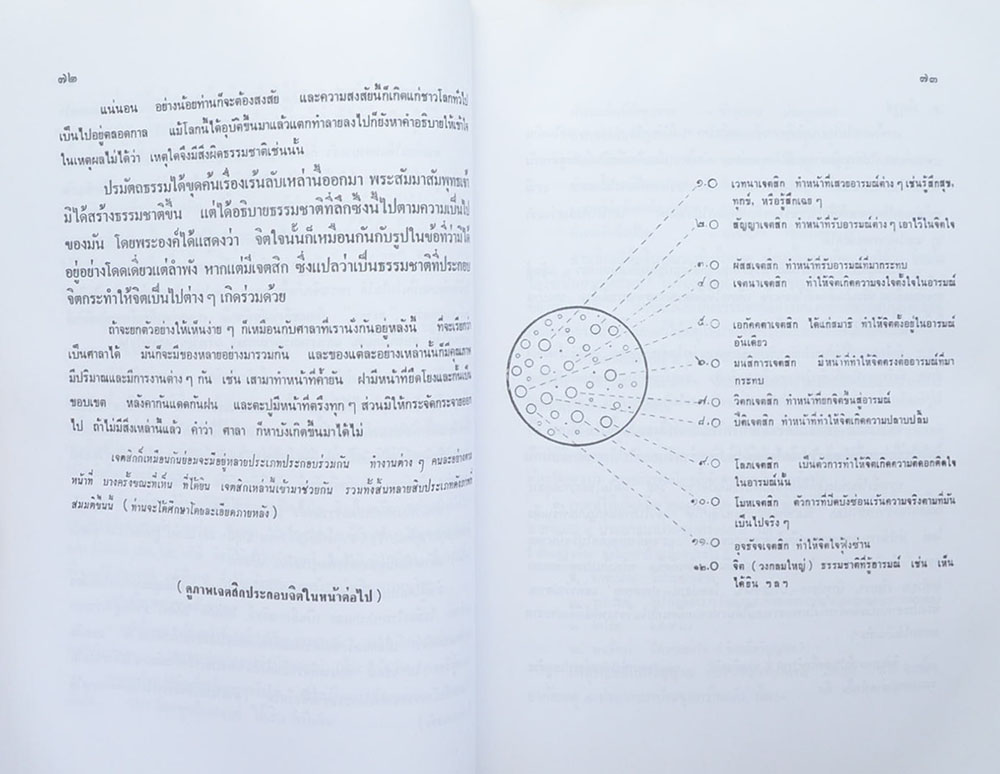 ๗๒
แน่นอน อย่างน้อยท่านก็จะต้องสงสัย และความสงสัยนี้ก็เกิดแก่ชาวโลกทั่วไป
เป็นไปอยู่ตลอดกาล แม้โลกนี้ได้อุบัติขึ้นมาแล้วแตกทำลายลงไปก็ยังหาคำอธิบายให้เข้าใจ
ในเหตุผลไม่ได้ว่า เหตุใดจึงมีสิ่งผิดธรรมชาติเช่นนั้น
ปรมัตถธรรมได้ขุดค้นเรื่องเร้นลับเหล่านี้ออกมา พระสัมมาสัมพุทธเจ้า
มิได้สร้างธรรมชาติขึ้น แต่ได้อธิบายธรรมชาติที่ลึกซึ้งนี้ไปตามความเป็นไป
ของมัน โดยพระองค์ได้แสดงว่า จิตใจนั้นก็เหมือนกันกับรูปในข้อที่ว่ามิได้
อยู่อย่างโดดเดี่ยวแต่ลำพัง หากแต่มีเจตสิก ซึ่งแปลว่าเป็นธรรมชาติที่ประกอบ
จิตกระทำให้จิตเป็นไปต่าง ๆ เกิดร่วมด้วย
ถ้าจะยกตัวอย่างให้เห็นง่าย ๆ ก็เหมือนกับศาลาที่เรานั่งกันอยู่หลังนี้ ที่จะเรียกว่า
เป็นศาลาได้ มันก็จะมีของหลายอย่างมารวมกัน และของแต่ละอย่างเหล่านั้นก็มีคุณภาพ
มีปริมาณและมีการงานต่าง ๆ กัน เช่น เสามาทำหน้าที่ค้ำยัน ฝามีหน้าที่ยึดโยงและกั้นเป็น
ขอบเขต หลังคากันแดดกันฝน และตะปูมีหน้าที่ตรึงทุก ๆ ส่วนมิให้กระจัดกระจายออก
ไป ถ้าไม่มีสิ่งเหล่านี้แล้ว คำว่า ศาลา ก็หาบังเกิดขึ้นมาได้ไม่
เจตสิกก็เหมือนกันย่อมจะมีอยู่หลายประเภทประกอบรวมกัน ทำงานต่าง ๆ คนละอย่าง
หน้าที่ บางครั้งขณะที่เห็น ที่ได้ยิน เจตสิกเหล่านี้เข้ามาช่วยกัน รวมทั้งสิ้นหลายสิบประเภทดังภาพที่
สมมติขึ้นนี้ (ท่านจะได้ศึกษาโดยละเอียดภายหลัง)
(ดูภาพเจตสิกประกอบจิตในหน้าต่อไป)
๗๓
๑. เวทนาเจตสิก ทำหน้าที่เสวยอารมณ์ต่าง ๆ เช่นรู้สึกสุข,
ทุกข์, หรือรู้สึกเฉย ๆ
๒. สัญญาเจตสิก ทำหน้าที่รับอารมณ์ต่าง ๆ เอาไว้ในจิตใจ
๓. ผัสสเจตสิก ทำหน้าที่รับอารมณ์ที่มากระทบ
๔ เจตนาเจตสิก ทำให้จิตเกิดความจงใจตั้งใจในอารมณ์
๕. เอกัคคตาเจตสิก ได้แก่สมาธิ ทำให้จิตตั้งอยู่ในอารมณ์
อันเดียว
๖. มนสิการเจตสิก มีหน้าที่ทำให้จิตตรงต่ออารมณ์ที่มา
กระทบ
๗. วิตกเจตสิก ทำหน้าที่ยกจิตขึ้นสู่อารมณ์
๘. ปีติเจตสิก ทำหน้าที่ทำให้จิตเกิดความปลาบปลื้ม
๙. โลภเจตสิก เป็นตัวการทำให้จิตเกิดความติดอกติดใจ
ในอารมณ์นั้น
๑๐. โมหเจตสิก ตัวการที่ปิดบังซ่อนเร้นความจริงตามที่มัน
เป็นไปจริง ๆ
๑๑. อุธัจจเจตสิก ทำให้จิตใจฟุ้งซ่าน
๑๒. จิต (วงกลมใหญ่) ธรรมชาติที่รู้อารมณ์ เช่น เห็น
ได้ยิน ฯลฯ